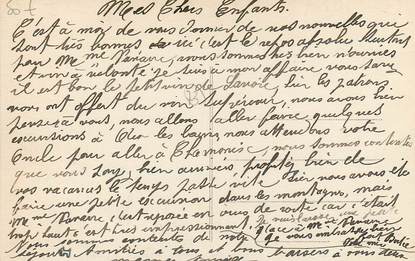 Mes Chers Enfants.
C'est à moi de vous donner de nos nouvelles qui
sont très bonnes ici c'est le repos absolu surtout
pour Mme nous sommes très bien nourries
et vin à volonté je suis à mon affaire vous savez
il est bon le petit vin de Savoie, hier les patrons
nous ont offert du vin supérieur, nous avons bien
pensé à vous, nous allons aller faire quelques
excursions à nous attendons votre
Oncle pour aller à Chamonix, nous sommes contentes
que vous soyez bien arrivés, profitez bien de
vos vacances le temps passe vite hier nous avons été
faire une petite excursion dans les montagnes, mais
Mme s'est reposée en nous de suite car c'était
trop haut c'est très impressionnant
Nous sommes contentes de notre
séjour Amitiés à tous et bons baisers à vous deux
Mme
je vous embrasse bien
fort